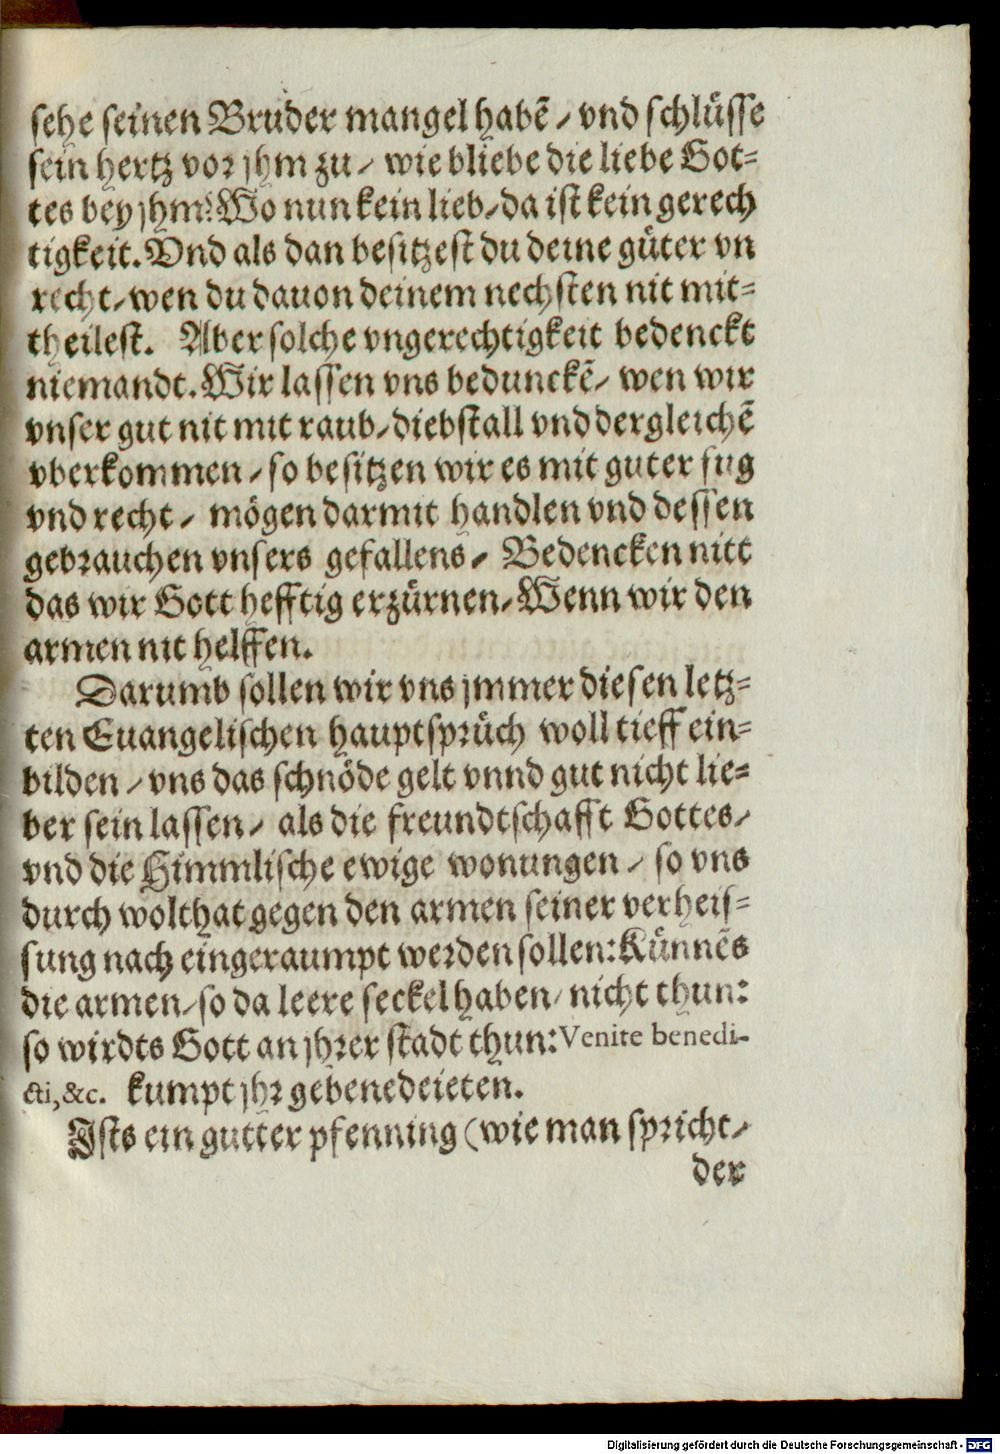 sehe seinen Bruder mangel habē / vnd schlüsse
sein hertz vor jhm zu / wie bliebe die liebe Got=
tes bey jhm? Wo nun kein lieb / da ist kein gerech
tigkeit. Vnd als dan besitzest du deine güter vn
recht / wen du dauon deinem nechsten nit mit=
theilest. Aber solche vngerechtigkeit bedenckt
niemandt. Wir lassen vns bedunckē / wen wir
vnser gut nit mit raub / diebstall vnd dergleichē
vberkommen / so besitzen wir es mit guter fug
vnd recht / mögen darmit handlen vnd dessen
gebrauchen vnsers gefallens / Bedencken nitt
das wir Gott hefftig erzürnen / Wenn wir den
armen nit helffen.
Darumb sollen wir vns jmmer diesen letz=
ten Euangelischen hauptsprüch woll tieff ein=
bilden / vns das schnöde gelt vnnd gut nicht lie=
ber sein lassen / als die freundtschafft Gottes /
vnd die Himmlische ewige wonungen / so vns
durch wolthat gegen den armen seiner verheis=
sung nach eingeraumpt werden sollen: Künnēs
die armen / so da leere seckel haben / nicht thun:
so wirdts Gott an jhrer stadt thun: Venite benedi-
cti, &c. kumpt jhr gebenedeieten.
Ists ein gutter pfenning (wie man spricht /
der
Digitalisierung gefördert durch die Deutsche Forschungsgemeinschaft - DFG